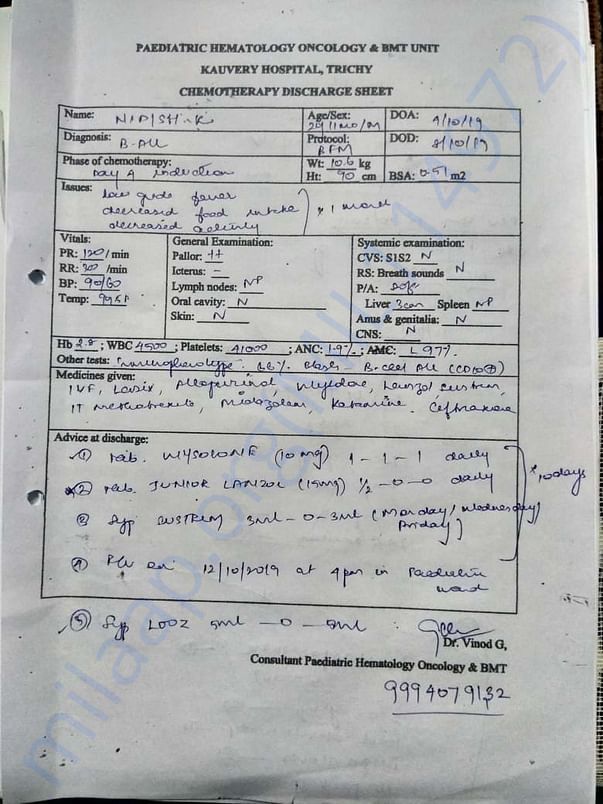 PAEDIATRIC HEMATOLOGY ONCOLOGY & BMT UNIT
KAUVERY HOSPITAL, TRICHY
CHEMOTHERAPY DISCHARGE SHEET
Name: Age/Sex: DOA: 4/10/19
Diagnosis: B-ALL Protocol: BFM DOD: 8/10/19
Phase of chemotherapy: Day 4 induction Wt: 10.6 kg Ht: 90 cm BSA: 0.51 m2
Issues: low grade fever
decreased food intake
decreased activity
Vitals: General Examination: Systemic examination:
PR: 120/min Pallor: ++ CVS: S1S2 N
RR: /min Icterus: - RS: Breath sounds N
BP: 90/60 Lymph nodes: NP P/A: soft
Temp: Oral cavity: N Liver 3cm Spleen NP
Skin: N Anus & genitalia: N
CNS: N
Hb 2.8; WBC 4500; Platelets: 41000; ANC: 1.9%; AMC: L 97%
Other tests: Immunophenotype: 66% Blasts B-cell ALL (CD10+)
Medicines given:
IVF, Lasix, Allopurinol, Wysolone, Lanzol
IT Methotrexate, Midazolam, Ketamine,
Advice at discharge:
① Tab. WYSOLONE (10mg) 1 - 1 - 1 daily
② Tab. JUNIOR LANZOL (15mg) ½ - 0 - 0 daily
③ Syp 3ml - 0 - 3ml (Monday/Wednesday/
Friday)
x 10 days
④ 12/10/2019 at 4pm in Paediatric
ward
⑤ Syp LOOZ 5ml - 0 - 5ml
Dr. Vinod G,
Consultant Paediatric Hematology Oncology & BMT
9994079132
milaap.org